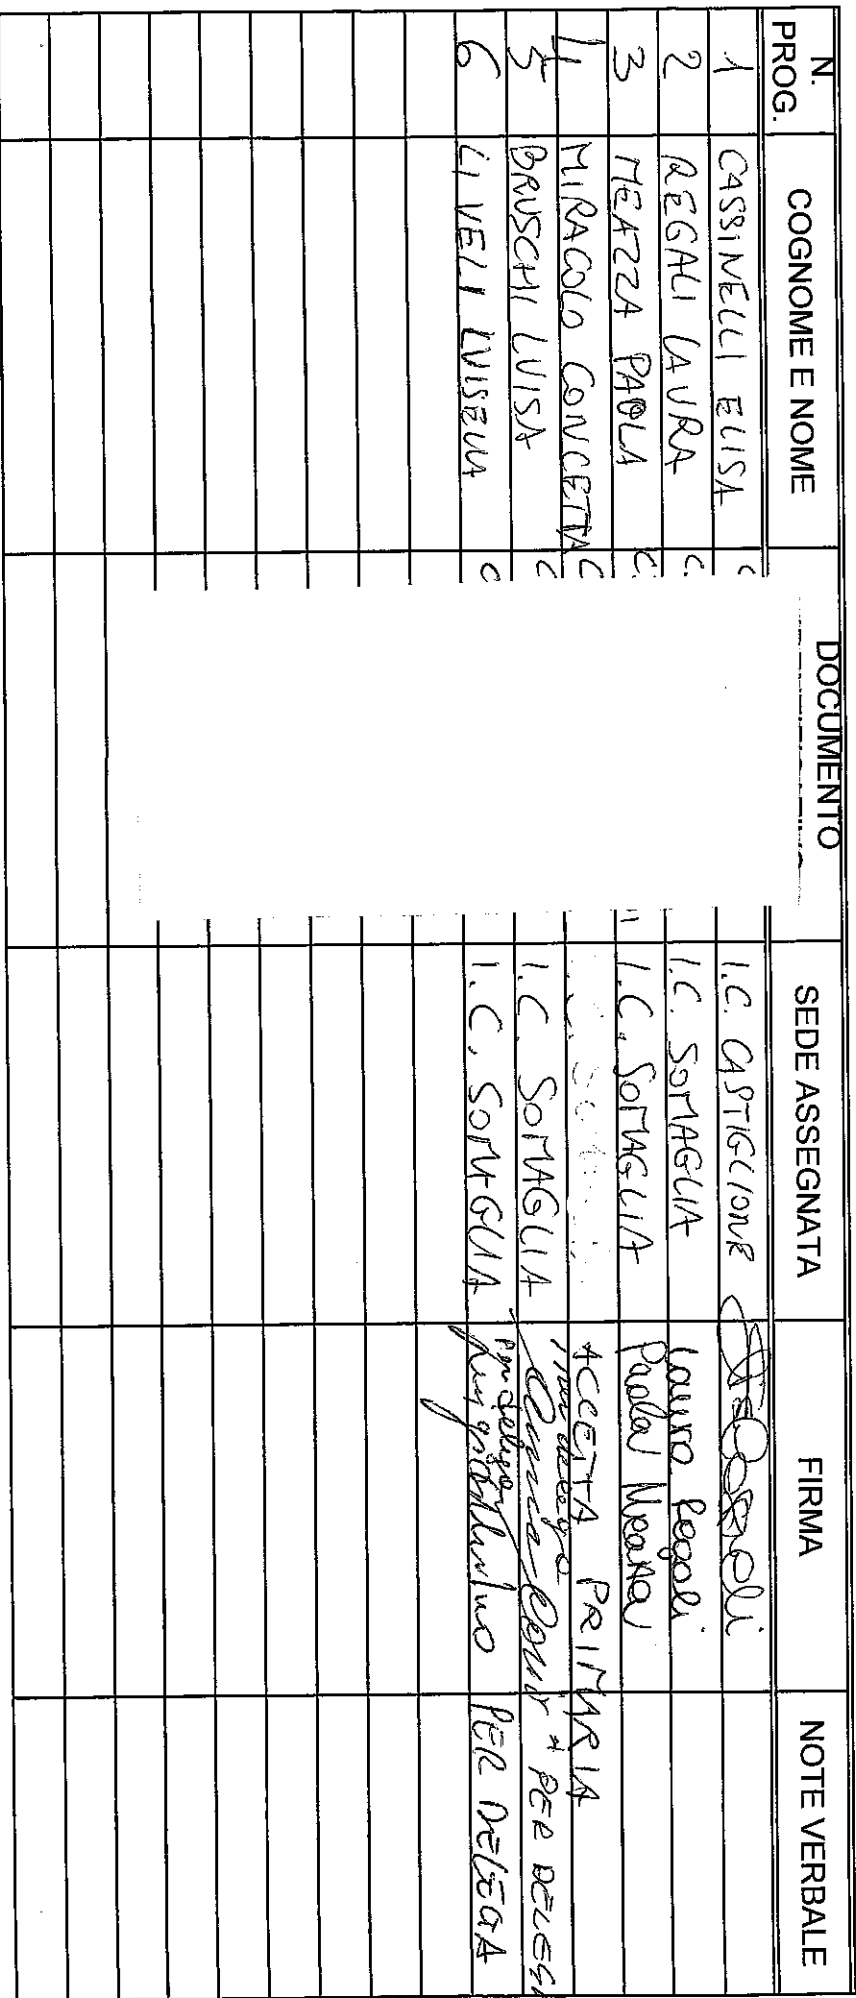 N. PROG. COGNOME E NOME DOCUMENTO SEDE ASSEGNATA FIRMA NOTE VERBALE
1 CASSINELLI ELISA C I.C. CASTIGLIONE
2 REGALI LAURA C. I.C. SOMAGLIA Laura Regali
3 MEAZZA PAOLA C. I.C. SOMAGLIA Paola Meazza
4 MIRACOLO CONCETTA C ACCETTA PRIMARIA
5 BRUSCHI LUISA C I.C. SOMAGLIA * PER DELEGA
6 LIVELI LUISELLA C I.C. SOMAGLIA per delega PER DELEGA